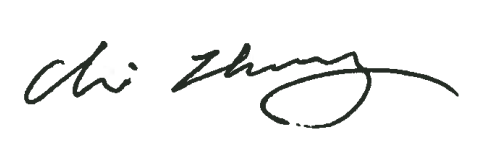 Chi Zhang